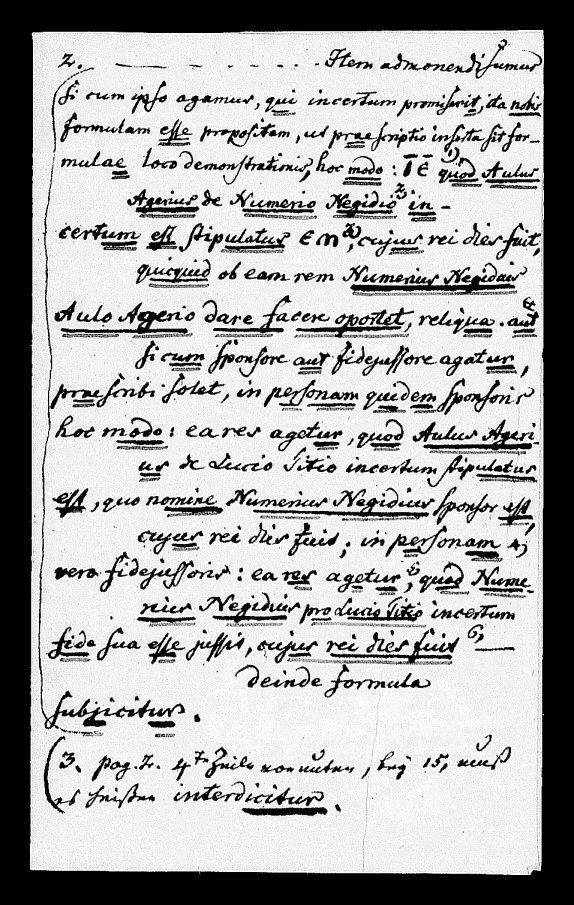 2. — — — — — — — Item admonendi sumus
si cum ipso agamus, qui incertum promiserit, ita nobis
formulam esse propositam, ut praescriptio inserta sit for-
mulae loco demonstrationis, hoc modo: IE 1) quod Aulus
Agerius de Numerio Negidio 2) in-
certum est stipulatus Em 3), cujus rei dies fuit,
quicquid ob eam rem Numerius Negidius
Aulo Agerio dare facere oportet, reliqua. aut
si cum sponsore aut fidejussore agatur,
praescribi solet, in personam quidem sponsoris
hoc modo: ea res agetur, quod Aulus Ageri-
us de Lucio Titio incertum stipulatus
est, quo nomine Numerius Negidius sponsor est,
cujus rei dies fuit; in personam 4)
vero fidejussoris: ea res agetur 5), quod Nume-
rius Negidius pro Lucio Titio incertum
fide sua esse jussit, cujus rei dies fuit 6) —
deinde formula
subjicitur.
3. pag. 2. 4te Zeile von unten, bey 15, muß
es heißen interdicitur.